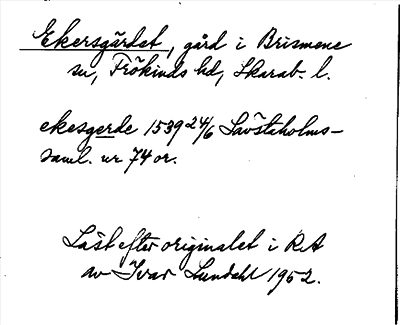 Ekersgärdet, gård i Brismene
sn, Frökinds hd, Skarab. l.
ekesgerde 1539 24/6 Sävstaholms-
saml. nr 74 or.
Läst efter originalet i RA
av Ivar Lundahl 1952.